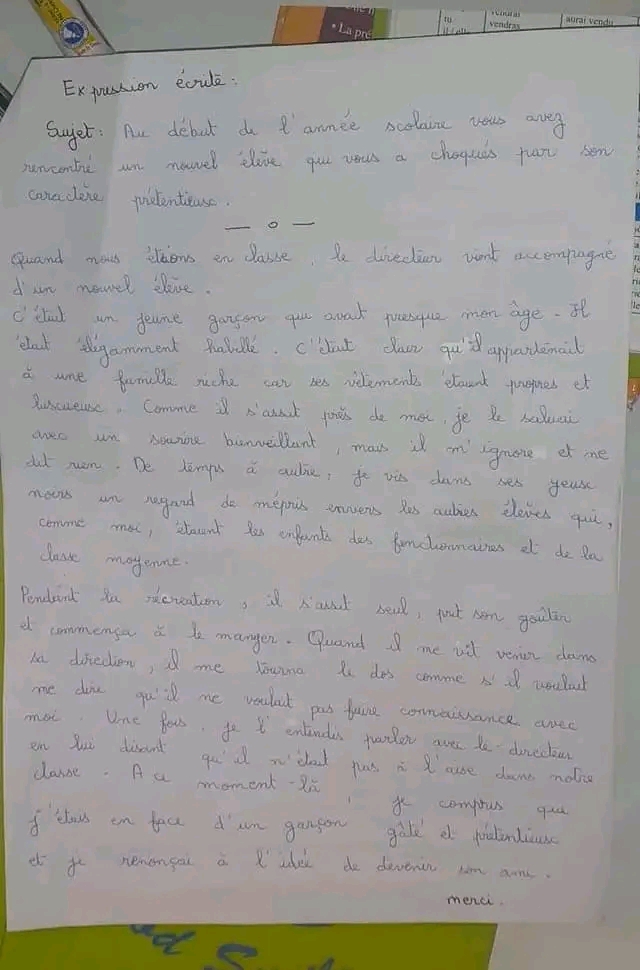 • La pré
tu
vendras
aurai vendu
Expression écrite :
Sujet : Au début de l'année scolaire vous avez
rencontré un nouvel élève qui vous a choqués par son
caractère prétentieux.
— o —
Quand nous étions en classe, le directeur vint accompagné
d'un nouvel élève.
C'était un jeune garçon qui avait presque mon âge. Il
était élégamment habillé. C'était clair qu'il appartenait
à une famille riche car ses vêtements étaient propres et
luxueux. Comme il s'assit près de moi, je le saluai
avec un sourire bienveillant, mais il m'ignore et ne
dit rien. De temps à autre, je vis dans ses yeux
noirs un regard de mépris envers les autres élèves qui,
comme moi, étaient les enfants des fonctionnaires et de la
classe moyenne.
Pendant la récréation, il s'assit seul, prit son goûter
et commença à le manger. Quand il me vit venir dans
sa direction, il me tourna le dos comme s'il voulait
me dire qu'il ne voulait pas faire connaissance avec
moi. Une fois, je l'entendis parler avec le directeur
en lui disant qu'il n'était pas à l'aise dans notre
classe. A ce moment-là, je compris que
j'étais en face d'un garçon gâté et prétentieux
et je renonçai à l'idée de devenir son ami.
merci.